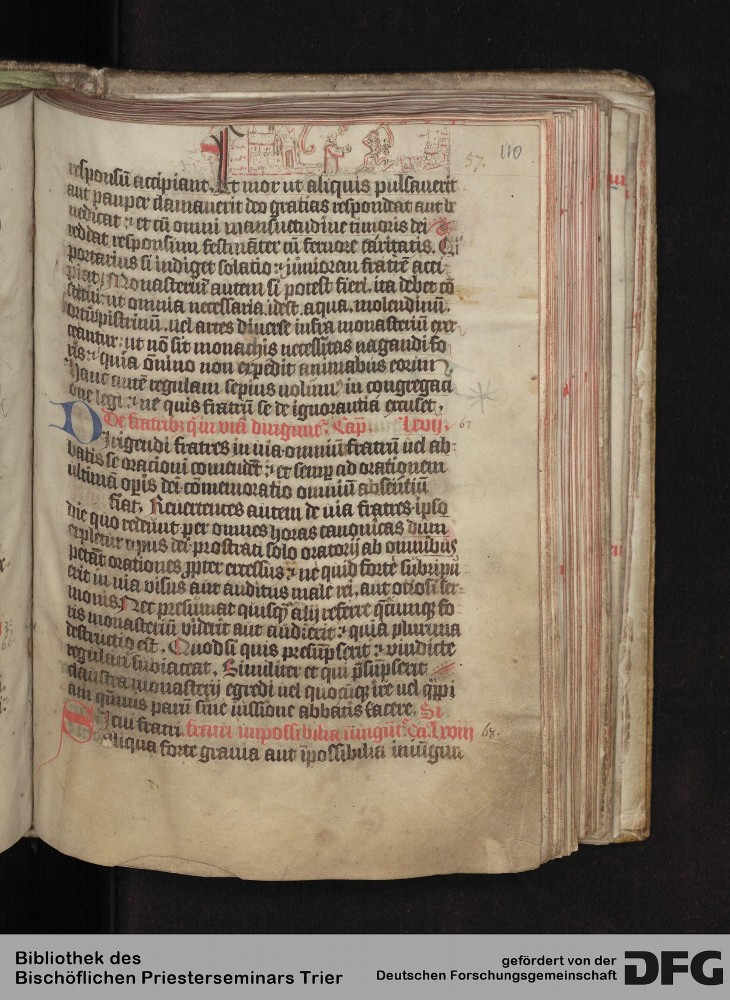 57. 110
responsū accipiant. Et mox ut aliquis pulsauerit
aut pauper clamauerit deo gratias respondeat aut be
nedicat : et cū omni mansuetudine timoris dei
reddat responsum festināter cū feruore caritatis. Qui
portarius si indiget solatio : juniorem fratrē acci
piat. Monasterium autem si potest fieri, ita debet cō
stitui : ut omnia necessaria. idest. aqua. molendinū.
ortus. pistrinū. uel artes diuerse infra monasteriū exer
ceantur : ut nō sit monachis necessitas uagandi fo
ris : quia ōnino non expedit animabus eorum
Hanc autē regulam sepius uolum᷒ in congregaci
one legi : ne quis fratrū se de ignorantia excuset.
De fratrib᷒ q̄ in viā dirigunt᷒. Cap. Lxvij. 67
Dirigendi fratres in uia omniū fratrū uel ab-
batis se oracioni comendēt : et semp ad orationem
ultimā opis dei cōmemoratio omniū absentiū
fiat. Reuertentes autem de uia fratres ipso
die quo redeunt per omnes horas canonicas dum
expletur opus dei prostrati solo oratorij ab omnibus
petāt orationes ꝓpter excessus : ne quid forte subripu
erit in uia visus aut auditus male rei, aut otiosi ser-
monis. Nec presumat quisqȝ alij referre q̄cumqȝ fo
ris monasteriū viderit aut audierit : quia plurima
destructio est. Quod si quis presūpserit : vindicte
regulari subiaceat. Similiter et qui p̄sūpserit
claustra monasterij egredi uel quocūqȝ ire uel q̄ppi
am quāuis paruū sine iussione abbatis facere. Si
Si cui fratri fratri impossibilia iniūgūt᷒. Ca. Lxviij 68.
aliqua forte grauia aut īpossibilia iniūgun
Bibliothek des
Bischöflichen Priesterseminars Trier
gefördert von der
Deutschen Forschungsgemeinschaft
DFG